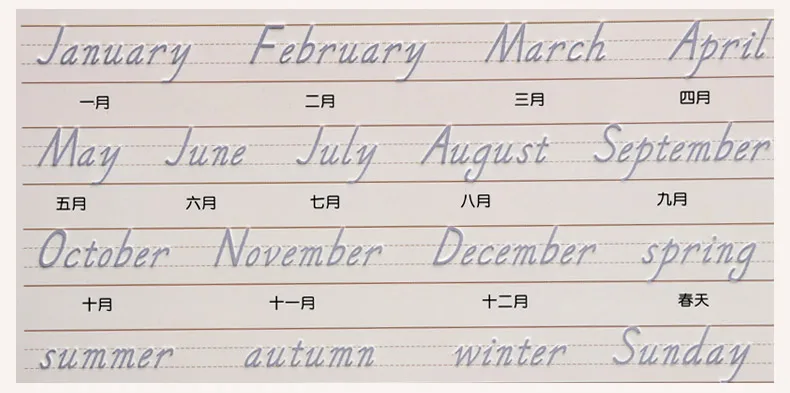 January February March April
一月 二月 三月 四月
May June July August September
五月 六月 七月 八月 九月
October November December spring
十月 十一月 十二月 春天
summer autumn winter Sunday